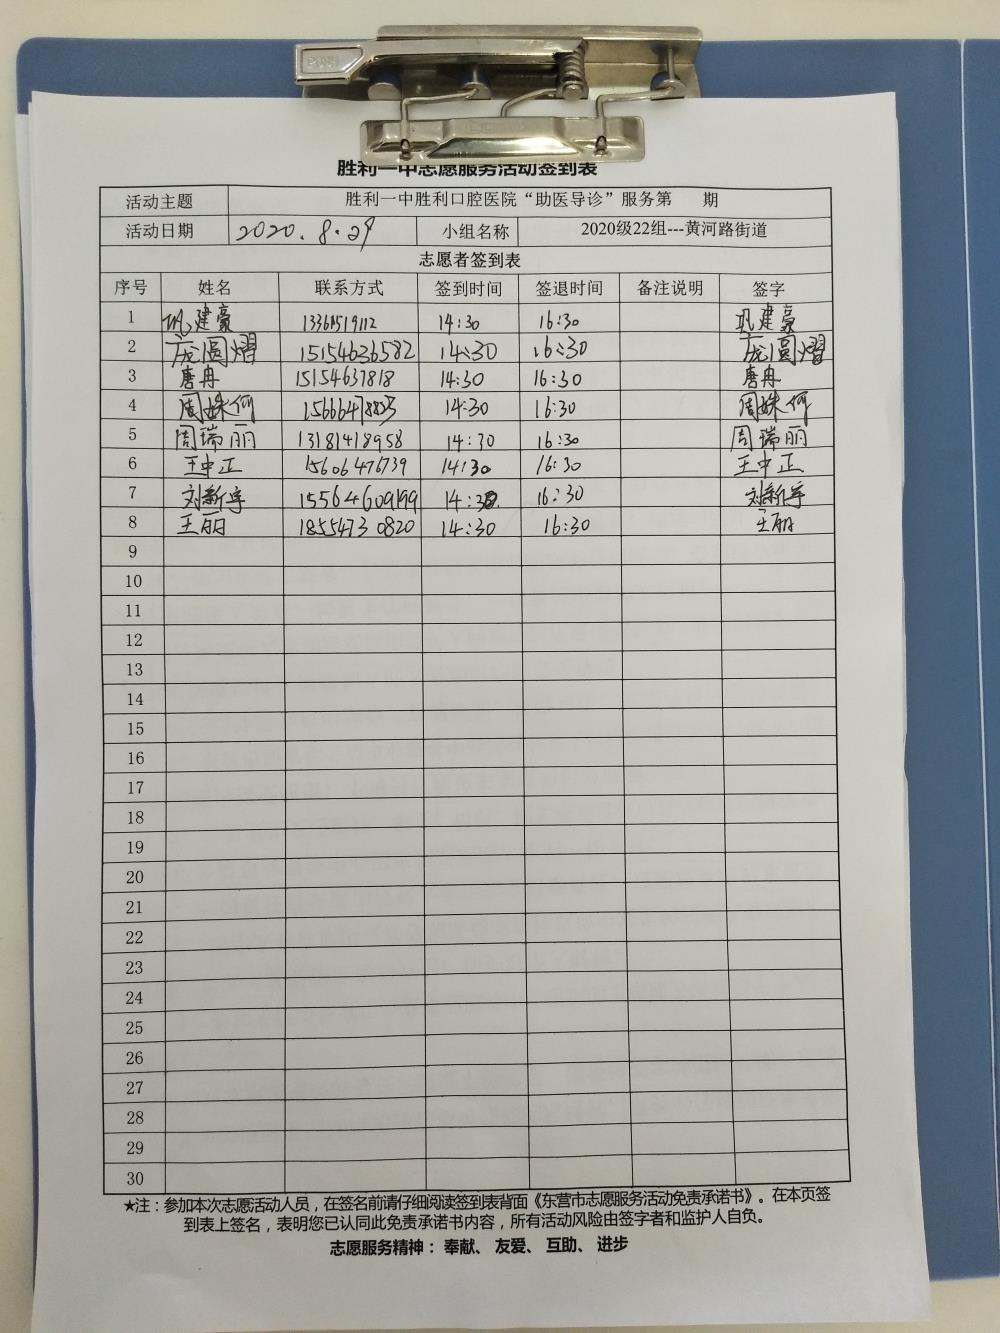 胜利一中志愿服务活动签到表
活动主题 胜利一中胜利口腔医院“助医导诊”服务第 期
活动日期 2020.8.29 小组名称 2020级22组---黄河路街道
志愿者签到表
序号 姓名 联系方式 签到时间 签退时间 备注说明 签字
1 巩建豪 14:30 16:30 巩建豪
2 庞圆熠 15154636582 14:30 16:30 庞圆熠
3 唐冉 15154637818 14:30 16:30 唐冉
4 周姝何 14:30 16:30 周姝何
5 周瑞丽 13181418958 14:30 16:30 周瑞丽
6 王中正 15606476739 14:30 16:30 王中正
7 刘新宇 15564609199 14:30 16:30 刘新宇
8 王丽 18554730820 14:30 16:30 王丽
9
10
11
12
13
14
15
16
17
18
19
20
21
22
23
24
25
26
27
28
29
30
★注：参加本次志愿活动人员，在签名前请仔细阅读签到表背面《东营市志愿服务活动免责承诺书》。在本页签
到表上签名，表明您已认同此免责承诺书内容，所有活动风险由签字者和监护人自负。
志愿服务精神：奉献、友爱、互助、进步